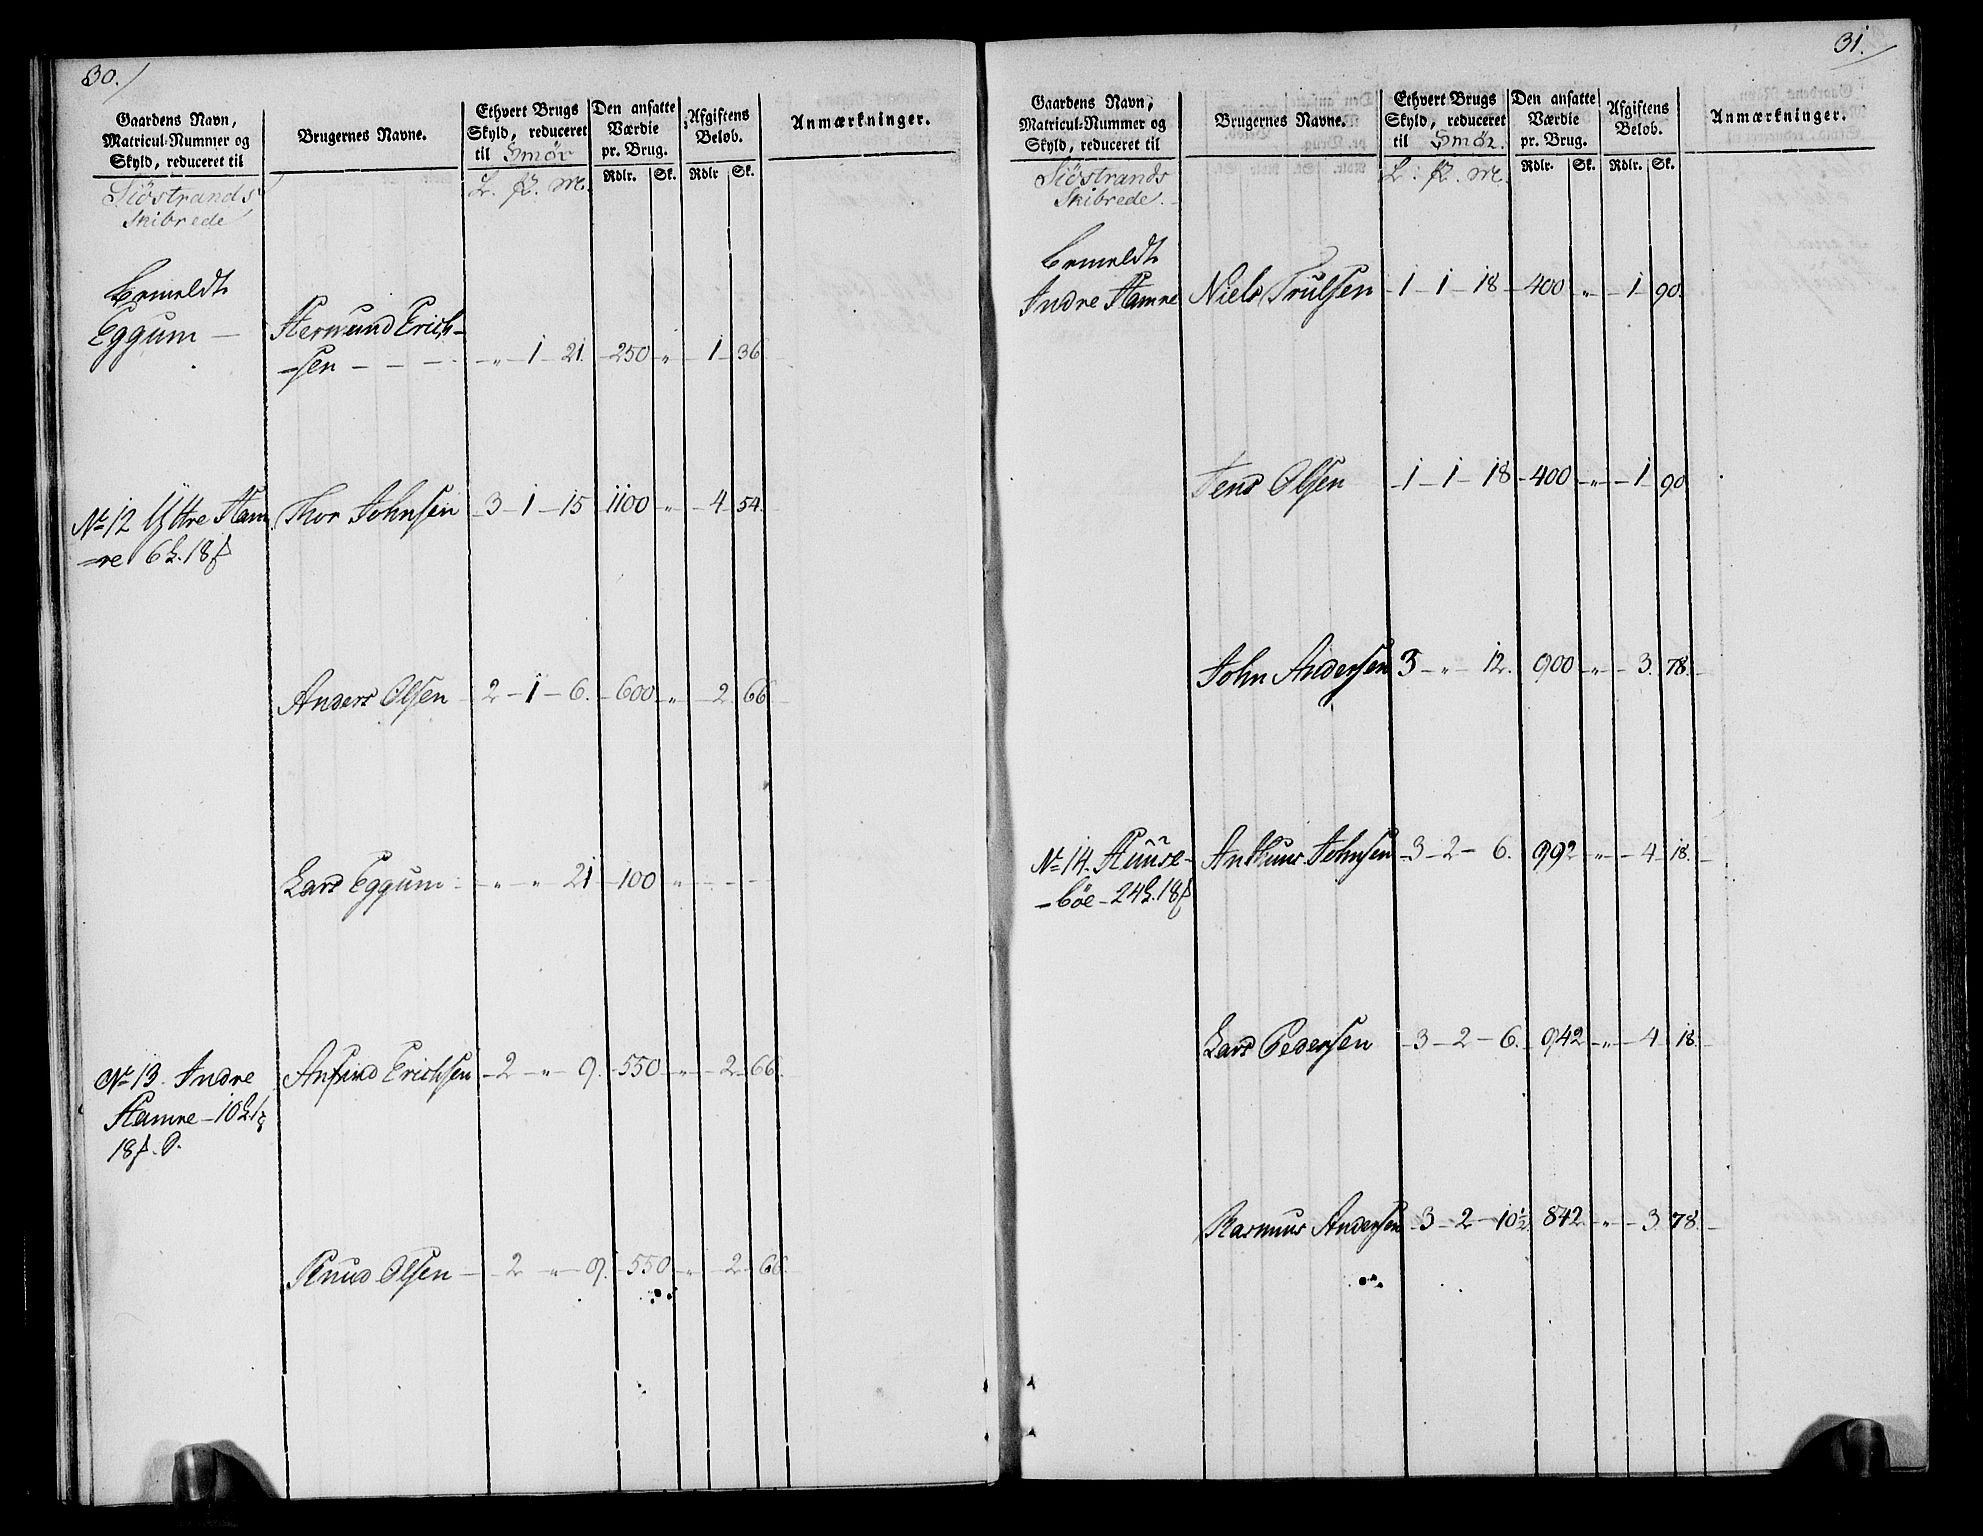 30.
Gaardens Navn, Matricul-Nummer og Skyld, reduceret til
Brugernes Navne.
Ethvert Brugs Skyld, reduceret til Smör
Den ansatte Værdie pr. Brug.
Afgiftens Beløb.
Anmærkninger.
Siöstrands Skibrede
L. Rdlr. Sk. Rdlr Sk.
Bemeldte
Eggum — Hermund Erich-
-sen — „ — 1 — 21. 250 „ 1 36
No 12 Yttre Ham Thor Johnsen 3 — 1 — 15 1100 „ 4 54
=re 6 L. 18
Anders Olsen 2 — 1 — 6. 600 „ 2 66
Lars Eggum „ — „ 21 100 „
No 13. Indre Anfind Erichsen 2 — „ 9. 550 „ 2 66
Hamre — 10 L.
18
Knud Olsen 2 „ 9. 550 „ 2 66.
31.
Gaardens Navn, Matricul-Nummer og Skyld, reduceret til
Brugernes Navne.
Ethvert Brugs Skyld, reduceret til Smör.
Den ansatte Værdie pr. Brug.
Afgiftens Beløb.
Anmærkninger.
Siöstrands Skibrede.
L. Rdlr. Sk. Rdlr. Sk.
Bemeldte
Indre Hamre Niels Trulsen 1 — 1 — 18 400 „ 1 90.
Jens Olsen 1 — 1 — 18 400 „ 1 90
John Andersen 3 — „ 12. 900 „ 3. 78.
No 14. Huuse- Anthuns Johnsen 3 — 2 — 6. 992 „ 4 18.
-böe — 24 L. 18
Lars Pedersen 3 — 2 — 6. 942 „ 4 18.
Rasmus Andersen 3 — 2 — 10½ 842 „ 3 78.